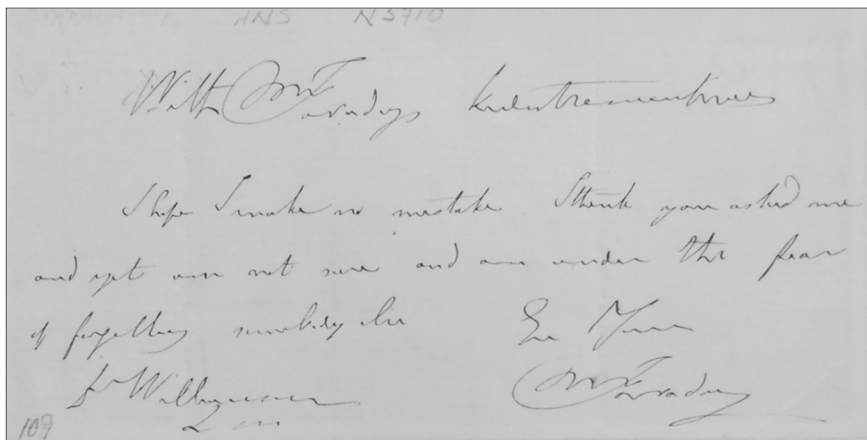 HNS N5710
With M Faradays kindest remembrances
I hope I make no mistake I think you asked me
and yet am not sure and am under the fear
of forgetting somebody else Ever Yours
Dr Williamson M Faraday
109